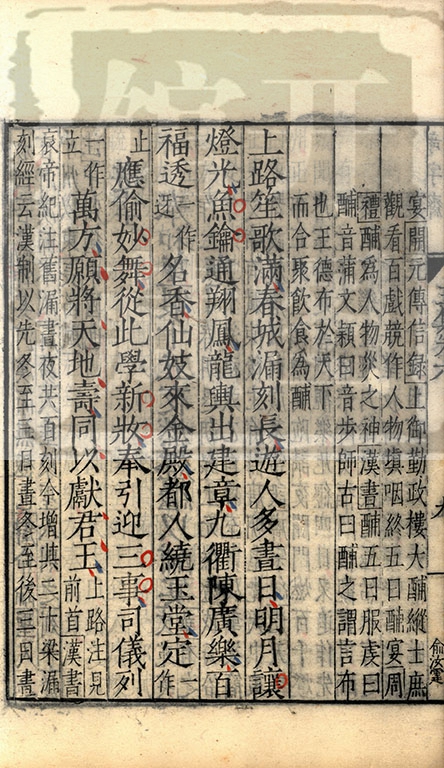 宴開元傳信録上御勤政樓大酺縱士庶
觀看百戲競作人物填咽終五日酺宴周
禮酺為人物災之神漢書酺五日服虔曰
酺音蒲文穎曰音步師古曰酺之謂言布
也王德布於天下
而合聚飲食為酺
上路笙歌滿春城漏刻長遊人多晝日明月讓
燈光魚鑰通翔鳳龍輿出建章九衢陳廣樂百
福透一作名香仙妓來金殿都人繞玉堂定一作
止應偷妙舞從此學新妝奉引迎三事司儀列
一作立萬方願將天地壽同以獻君王上路注見前首漢書
哀帝紀注舊漏晝夜共百刻今增其二十梁漏
刻經云漢制以先冬至三日晝冬至後三日晝
俞汝霆